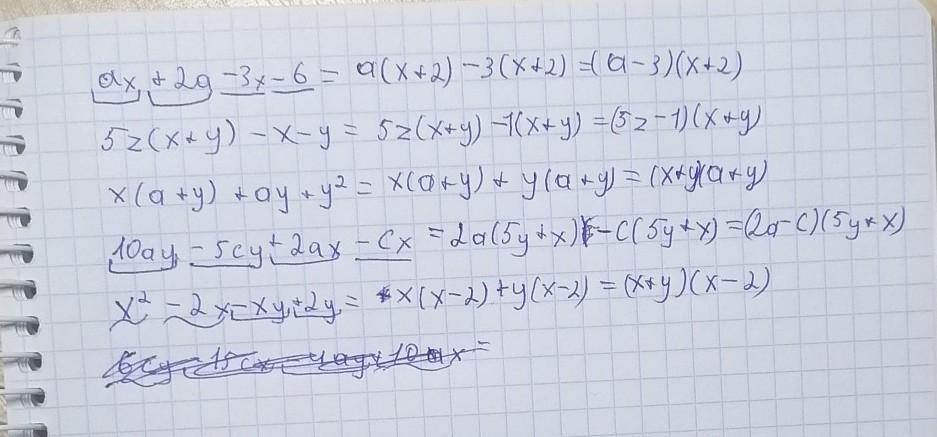 ax + 2a - 3x - 6 = a(x+2) - 3(x+2) = (a-3)(x+2)
5z(x+y) - x - y = 5z(x+y) - 1(x+y) = (5z-1)(x+y)
x(a+y) + ay + y² = x(a+y) + y(a+y) = (x+y)(a+y)
10ay - 5cy + 2ax - cx = 2a(5y+x) - c(5y+x) = (2a-c)(5y+x)
x² - 2x - xy + 2y = x(x-2) + y(x-2) = (x+y)(x-2)